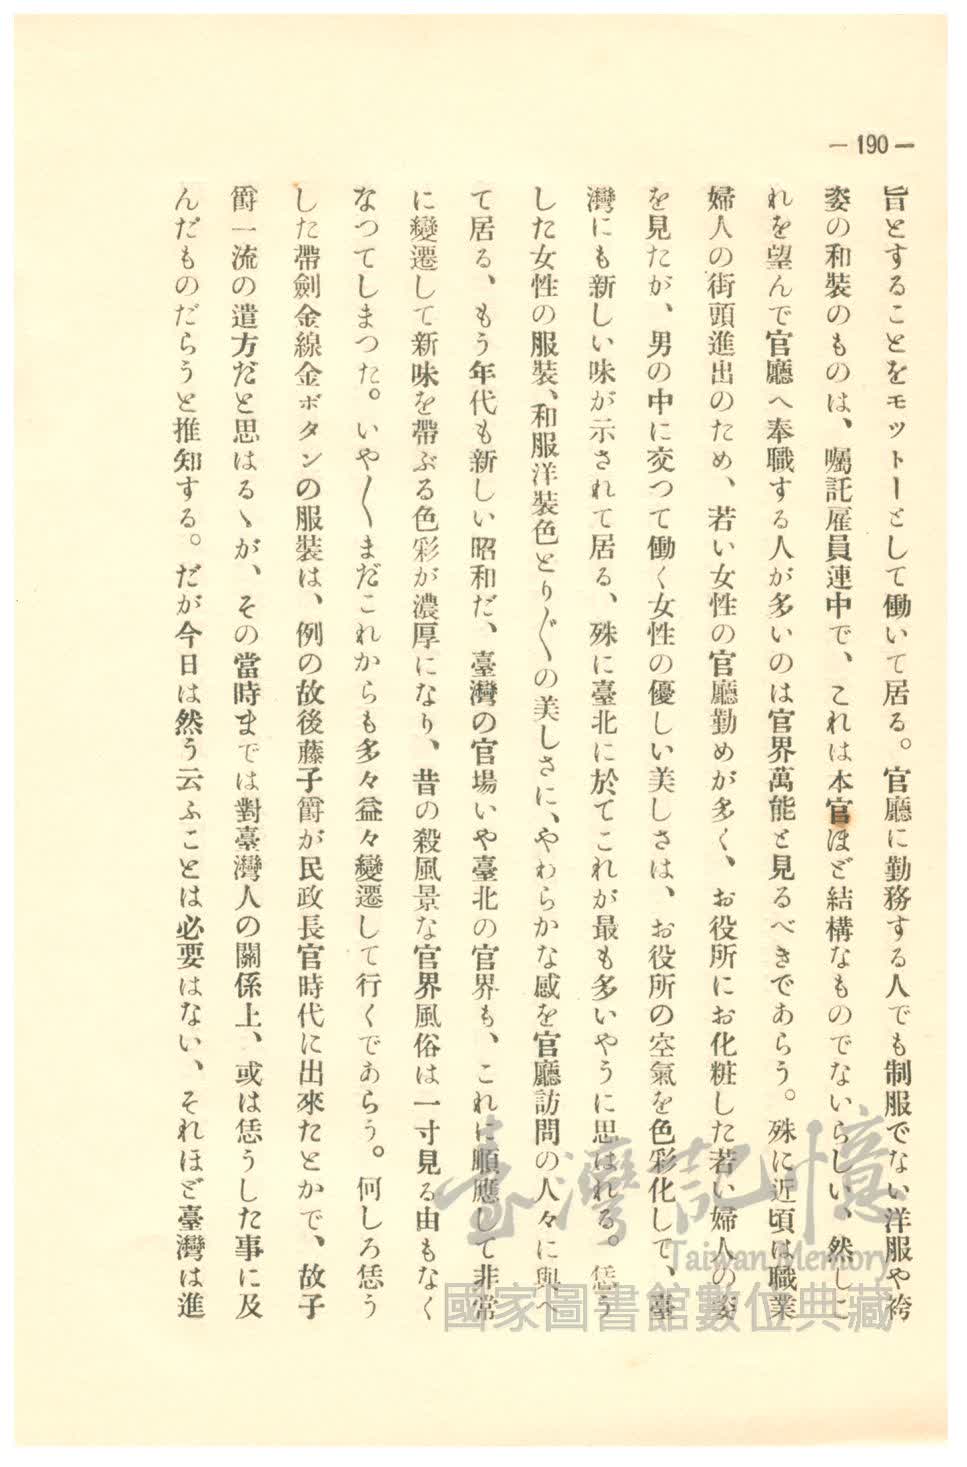 — 190 —
旨とすることをモットーとして働いて居る。官廳に勤務する人でも制服でない洋服や袴
姿の和裝のものは、囑託雇員連中で、これは本官ほど結構なものでないらしい、然しこ
れを望んで官廳へ奉職する人が多いのは官界萬能と見るべきであらう。殊に近頃は職業
婦人の街頭進出のため、若い女性の官廳勤めが多く、お役所にお化粧した若い婦人の姿
を見たが、男の中に交つて働く女性の優しい美しさは、お役所の空氣を色彩化して、臺
灣にも新しい味が示されて居る、殊に臺北に於てこれが最も多いやうに思はれる。恁う
した女性の服裝、和服洋裝色とり〴〵の美しさに、やわらかな感を官廳訪問の人々に與へ
て居る、もう年代も新しい昭和だ、臺灣の官場いや臺北の官界も、これに順應して非常
に變遷して新味を帶ぶる色彩が濃厚になり、昔の殺風景な官界風俗は一寸見る由もなく
なつてしまつた。いや〳〵まだこれからも多々益々變遷して行くであらう。何しろ恁う
した帶劍金線金ボタンの服裝は、例の故後藤子爵が民政長官時代に出來たとかで、故子
爵一流の遣方だと思はるゝが、その當時までは對臺灣人の關係上、或は恁うした事に及
んだものだらうと推知する。だが今日は然う云ふことは必要はない、それほど臺灣は進
臺灣記憶
Taiwan Memory
國家圖書館數位典藏